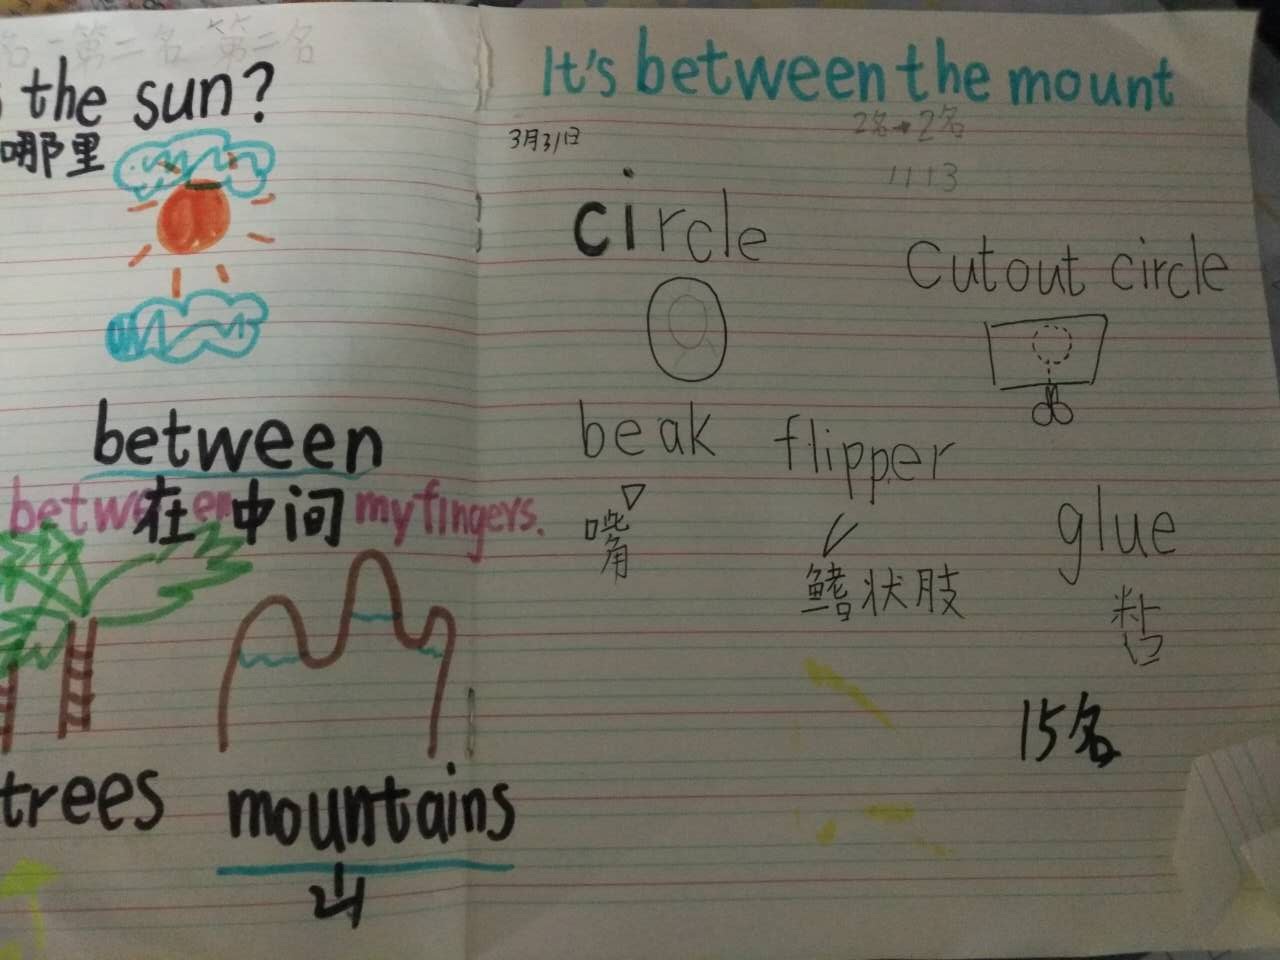 第二名 第二名
the sun?
哪里
between
between 在中间 my fingers.
trees
mountains
山
It's between the mount
2名→2名
3月31日
1113
circle
Cutout circle
beak
flipper
嘴角
鳍状肢
glue
粘
15名